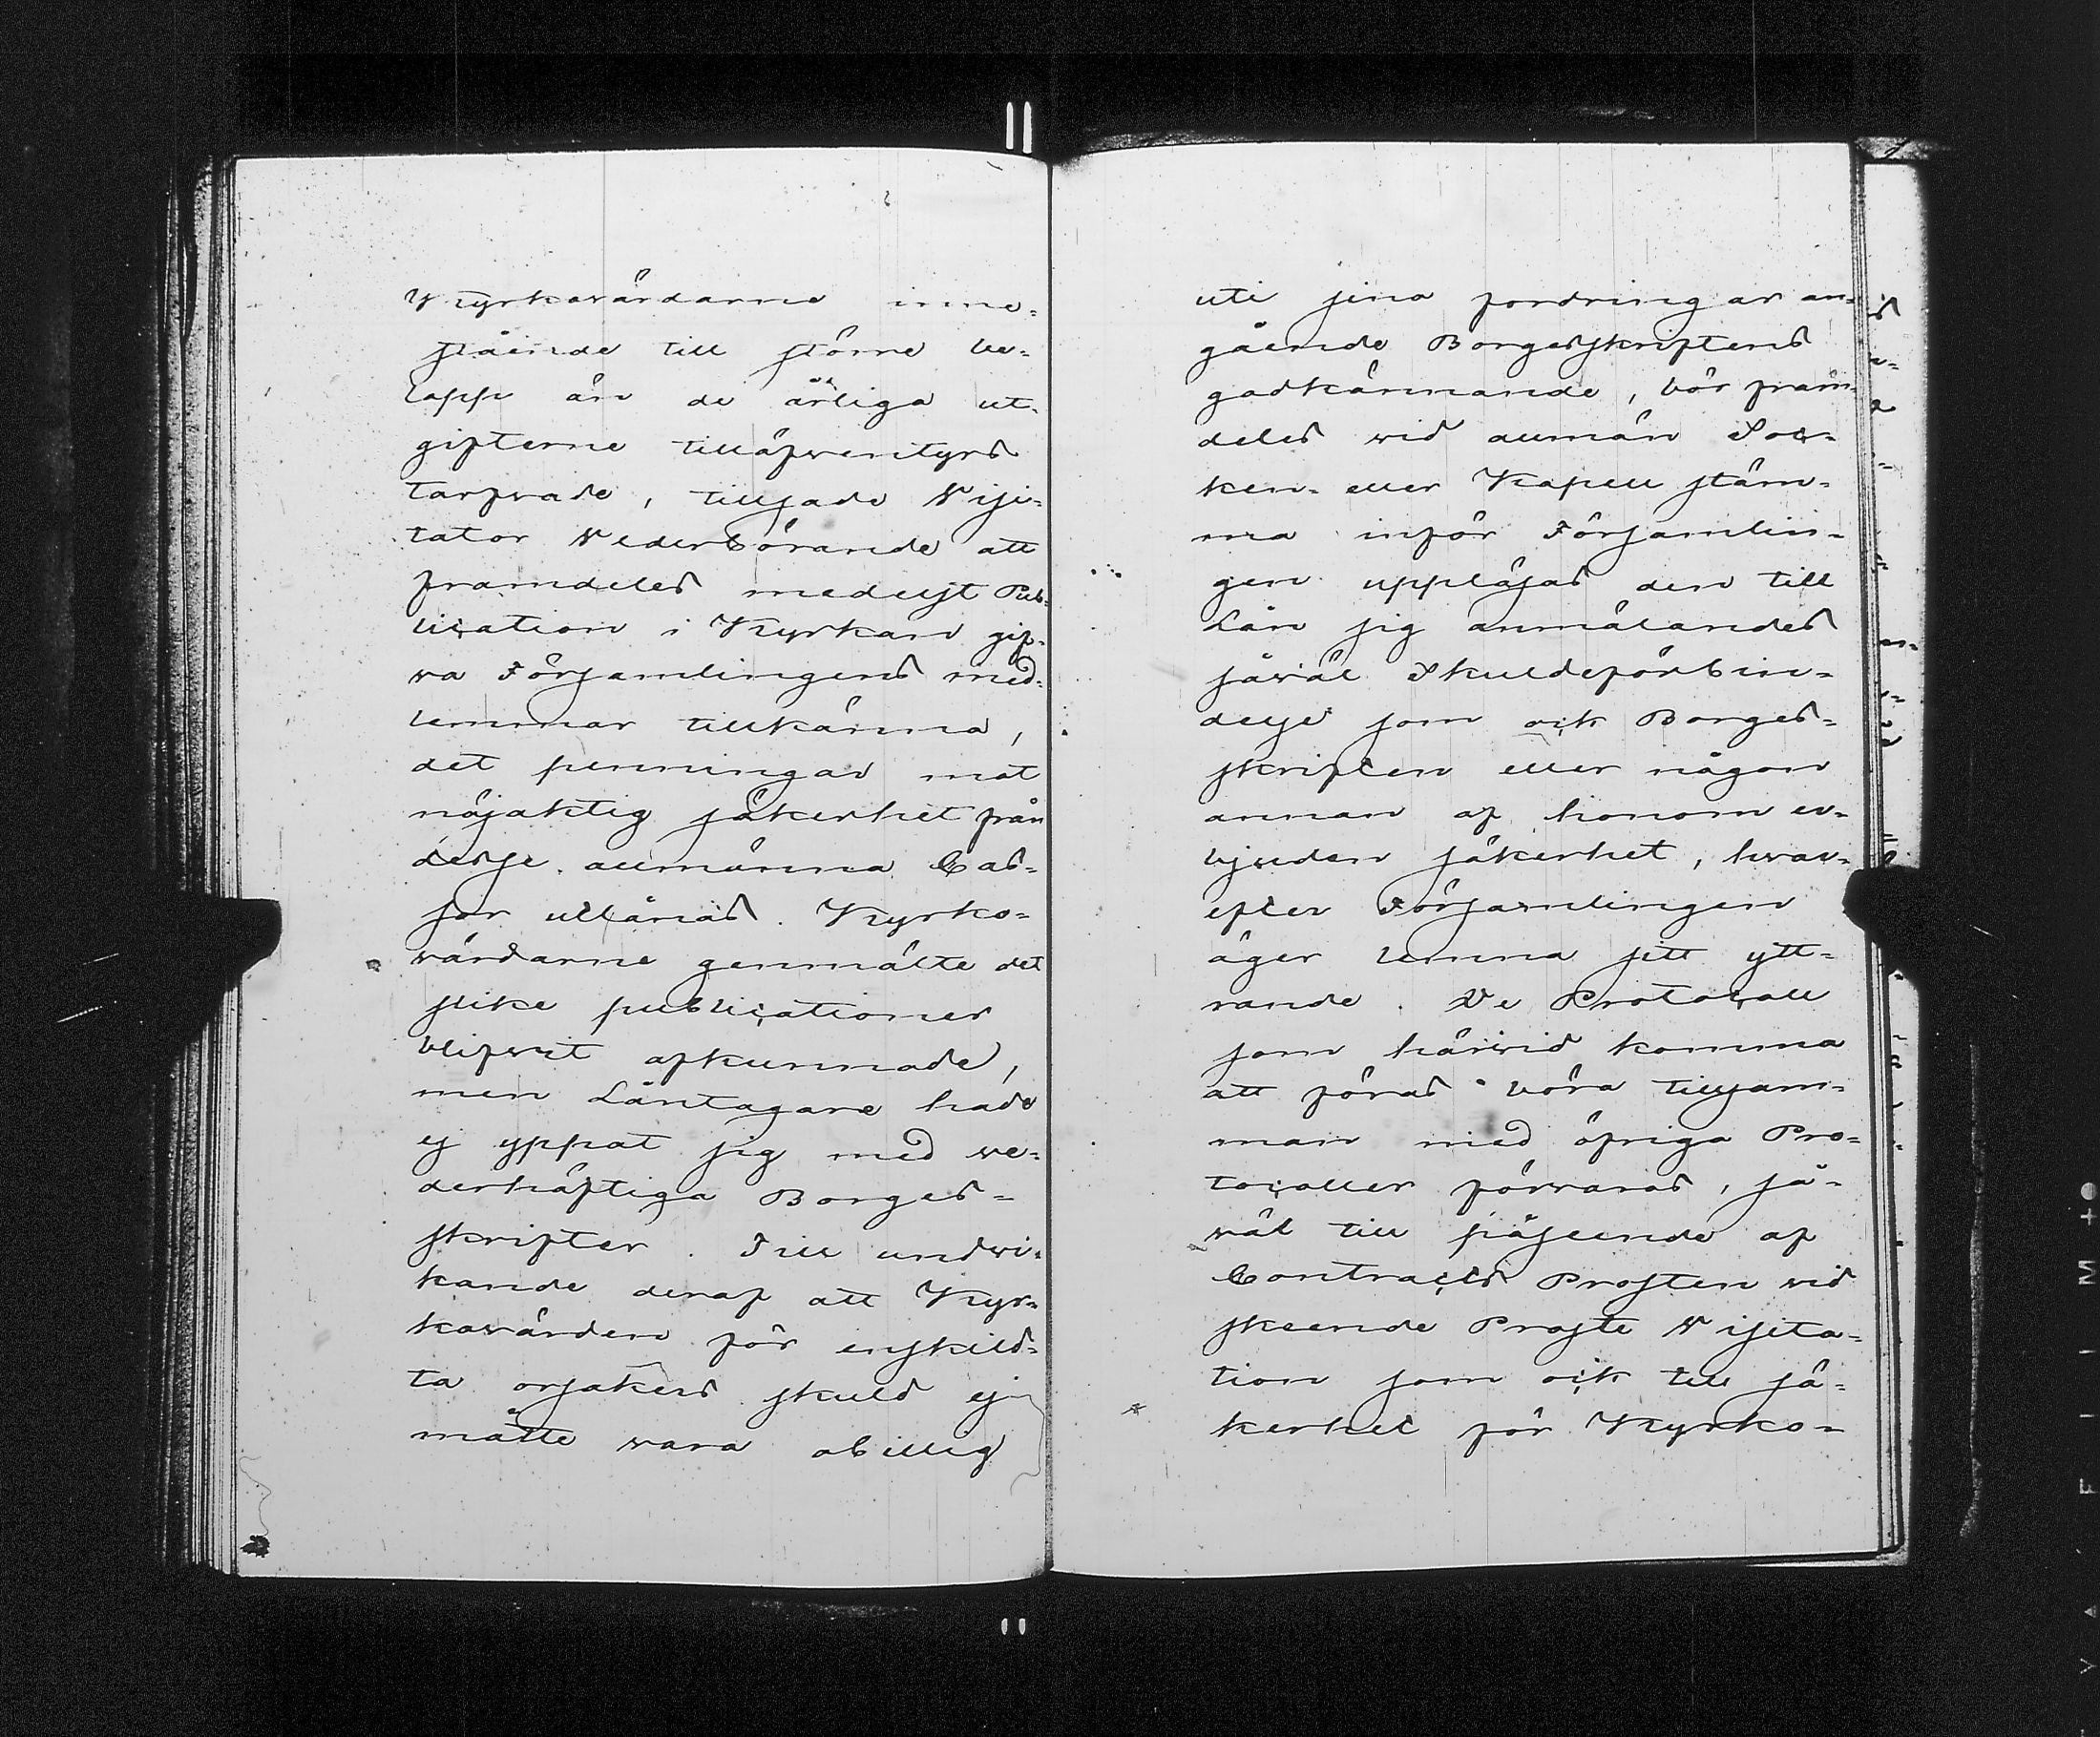 Kyrkovärdarne inne-
stående till större be-
lopp än de årliga ut-
gifterne tilläfventyrs
tarfvade, tillsade Visi-
tator Vederbörande att
framdeles medelst Pub-
lication i Kyrkan gif-
va Församlingens med-
lemmar tillkänna,
det penningar mot
nöjaktig säkerhet från
desse allmänna Cas-
sor utlånas. Kyrko-
värdarne genmälte det
slike publicationer
blifvit afkunnade,
men Låntagare hade
ej yppat sig med ve-
derhäftiga Borges-
skrifter. Till undvi-
kande deraf att Kyr-
kovärden för enskild-
ta orsakers skuld ej
måtte vara obillig
uti sina fordringar an-
gående Borgesskriftens
godkännande, bör fram-
deles vid allmän Soc-
ken- eller Kapell stäm-
ma inför Församlin-
gen uppläsas den till
Lån sig anmälandes
såväl Skuldeförbin-
delse som ock Borges-
skriften eller någon
annan af honom er-
bjuden säkerhet, hvar-
efter Församlingen
äger lemna sitt ytt-
rande. De Protocoll
som härvid komma
att föras böra tillsam-
man med öfriga Pro-
tocoller förvaras, så-
väl till påseende af
Contracts Prosten vid
skeende Proste Visita-
tion som ock till sä-
kerhet för Kyrko-
FILM